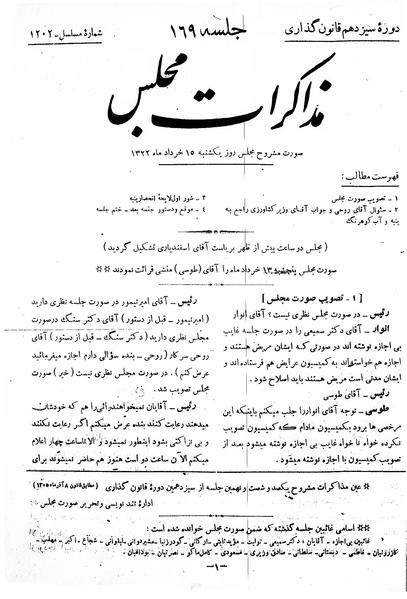 دورهٔ سیزدهم قانون گذاری
جلسه ۱۶۹
شمارهٔ مسلسل - ۱۲۰۲
مذاکرات مجلس
صورت مشروح مجلس روز یکشنبه ۱۵ خرداد ماه ۱۳۲۲
فهرست مطالب:
۱ - تصویب صورت مجلس
۲ - سئوال آقای روحی و جواب آقای وزیر کشاورزی راجع به
پنبه و آب کوهرنگ
۳ - شور اول لایحهٔ انحصار پنبه
۴ - موقع و دستور جلسه بعد - ختم جلسه
(مجلس دو ساعت پیش از ظهر بریاست آقای اسفندیاری تشکیل گردید)
صورت مجلس پنجشنبه ۱۲ خرداد ماه را آقای (طوسی) منشی قرائت نمودند **
[ ۱ - تصویب صورت مجلس ]
رئیس - در صورت مجلس نظری نیست؟ آقای انوار
انوار - آقای دکتر سمیعی را در صورت جلسه غایب
بی اجازه نوشته اند در صورتی که ایشان مریض هستند و
اجازه هم خواسته‌اند به کمیسیون عرایض هم فرستاده‌اند و
ایشان مدتی است مریض هستند باید اصلاح شود.
رئیس - آقای طوسی
طوسی - توجه آقای انوار را جلب میکنم باینکه این
مرخصی ها برود بکمیسیون مادام که کمیسیون تصویب
نکرده خواه نا خواه غایب بی اجازه نوشته میشود بعد از
تصویب کمیسیون با اجازه نوشته میشود.
رئیس - آقای امیر تیمور در صورت جلسه نظری دارید
(امیرتیمور - قبل از دستور) آقای دکتر سنگ در صورت
مجلس نظری دارید (دکتر سنگ - قبل از دستور) آقای
روحی سرکار (روحی - بنده سؤالی دارم اجازه میفرمائید
عرض کنم). در صورت مجلس نظری نیست (خیر) صورت
مجلس تصویب شد.
رئیس - آقایان نمیخواهند رائی را هم که خودشان
میدهند رعایت کنند بنده عرض میکنم اگر رعایت نکنند
و بی نزاکتی بشود اینطور نمیشود تا الان ساعت چهار اعلام
میکنم الآن ساعت دو است هنوز هم حاضر نمیشوند برای
* عین مذاکرات مشروح یکصد و شصت و نهمین جلسه از سیزدهمین دورهٔ قانون گذاری (مطابق قانون ۸ آذر ماه ۱۳۰۵)
ادارهٔ تند نویسی و تحریر صورت مجلس
** اسامی غائبین جلسهٔ گذشته که ضمن صورت مجلس خوانده شده است:
غائبین بی‌اجازه - آقایان: دکتر سمیعی - تولیت - مؤید ثابتی - ارگانی - گودرزنیا - مشیر دوانی - لیقوانی - شجاع - اکبر - مهذب -
کازرونیان - فاطمی - دبستانی - سلطانی - صادق وزیری - مسعودی - کامل ماکو - نصرتیان - بوداقیان
-۱-